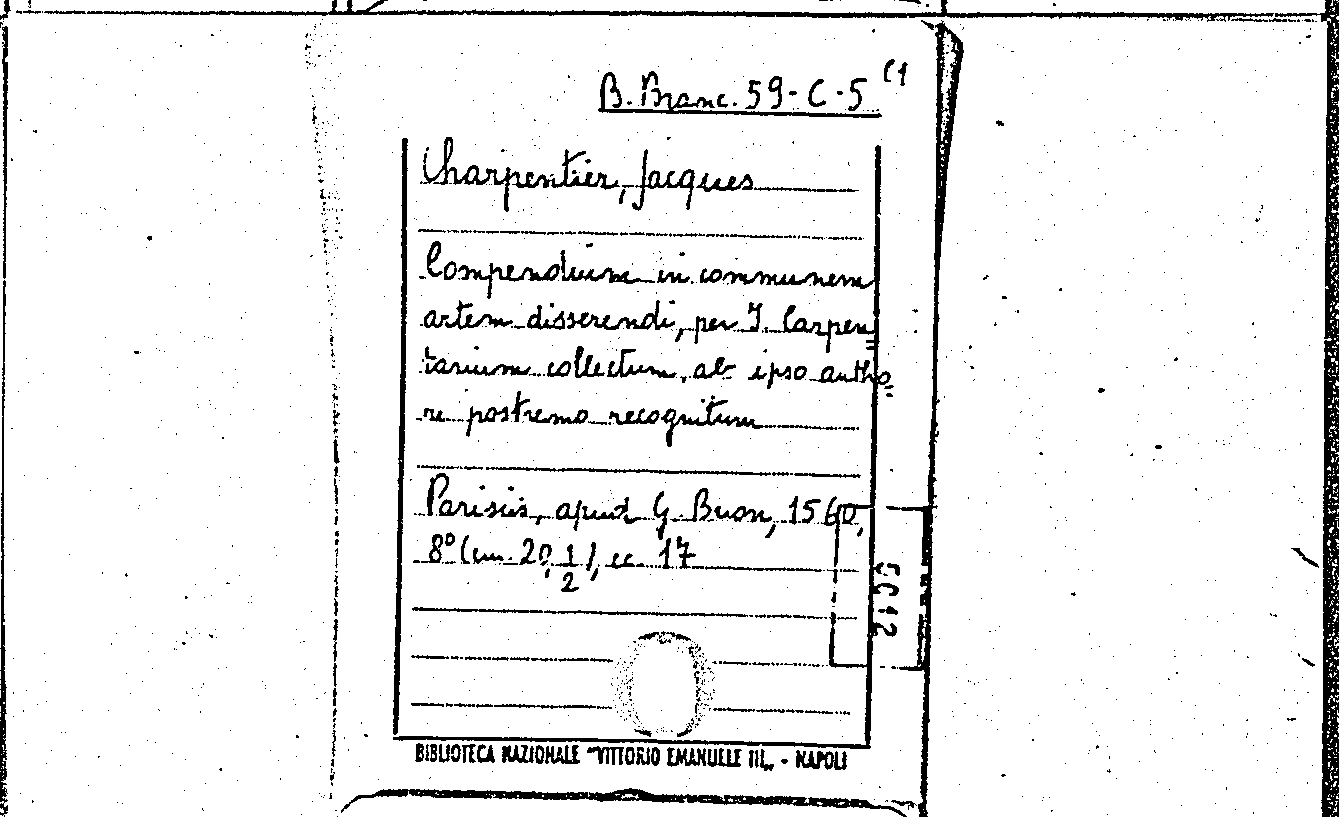 B. Branc. 59-C-5 (1
Charpentier, Jacques
Compendium in communem
artem disserendi, per J. Carpen=
tarium collectum, ab ipso autho=
re postremo recognitum
Parisiis, apud G. Buon, 1560,
8° (cm. 20,1/2), cc. 17
5C12
BIBLIOTECA NAZIONALE "VITTORIO EMANUELE III„ - NAPOLI